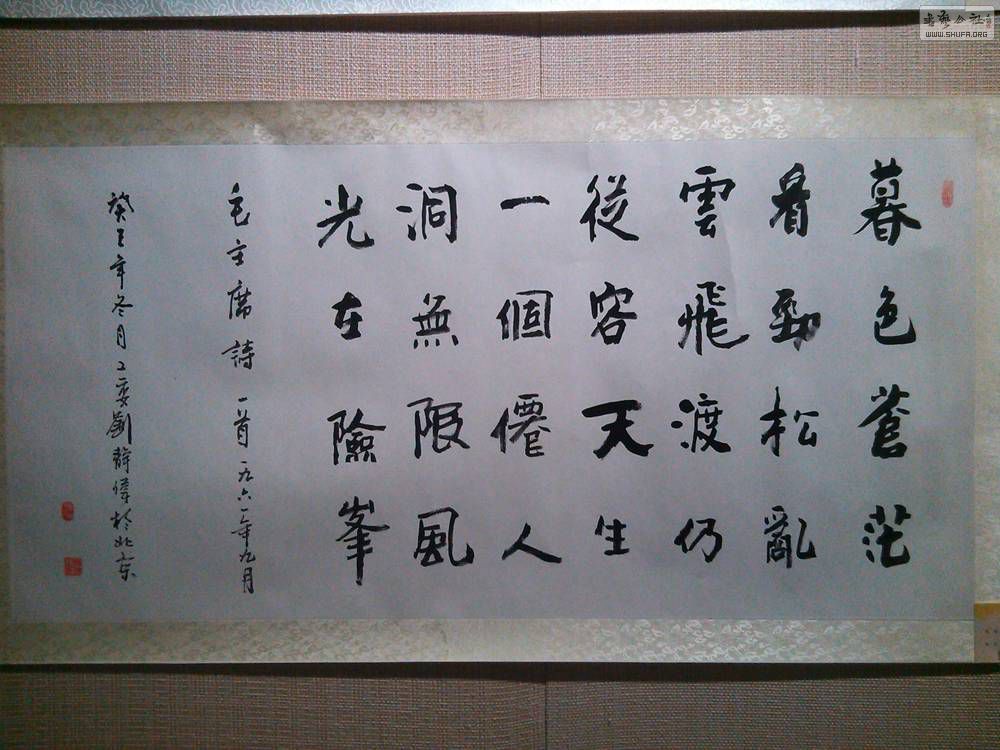 暮色蒼茫
看勁松亂
雲飛渡仍
從容天生
一個僊人
洞無限風
光在險峯
毛主席詩一首一九六一年九月
癸巳年冬月 劉靜偉於北京
WWW.SHUFA.ORG